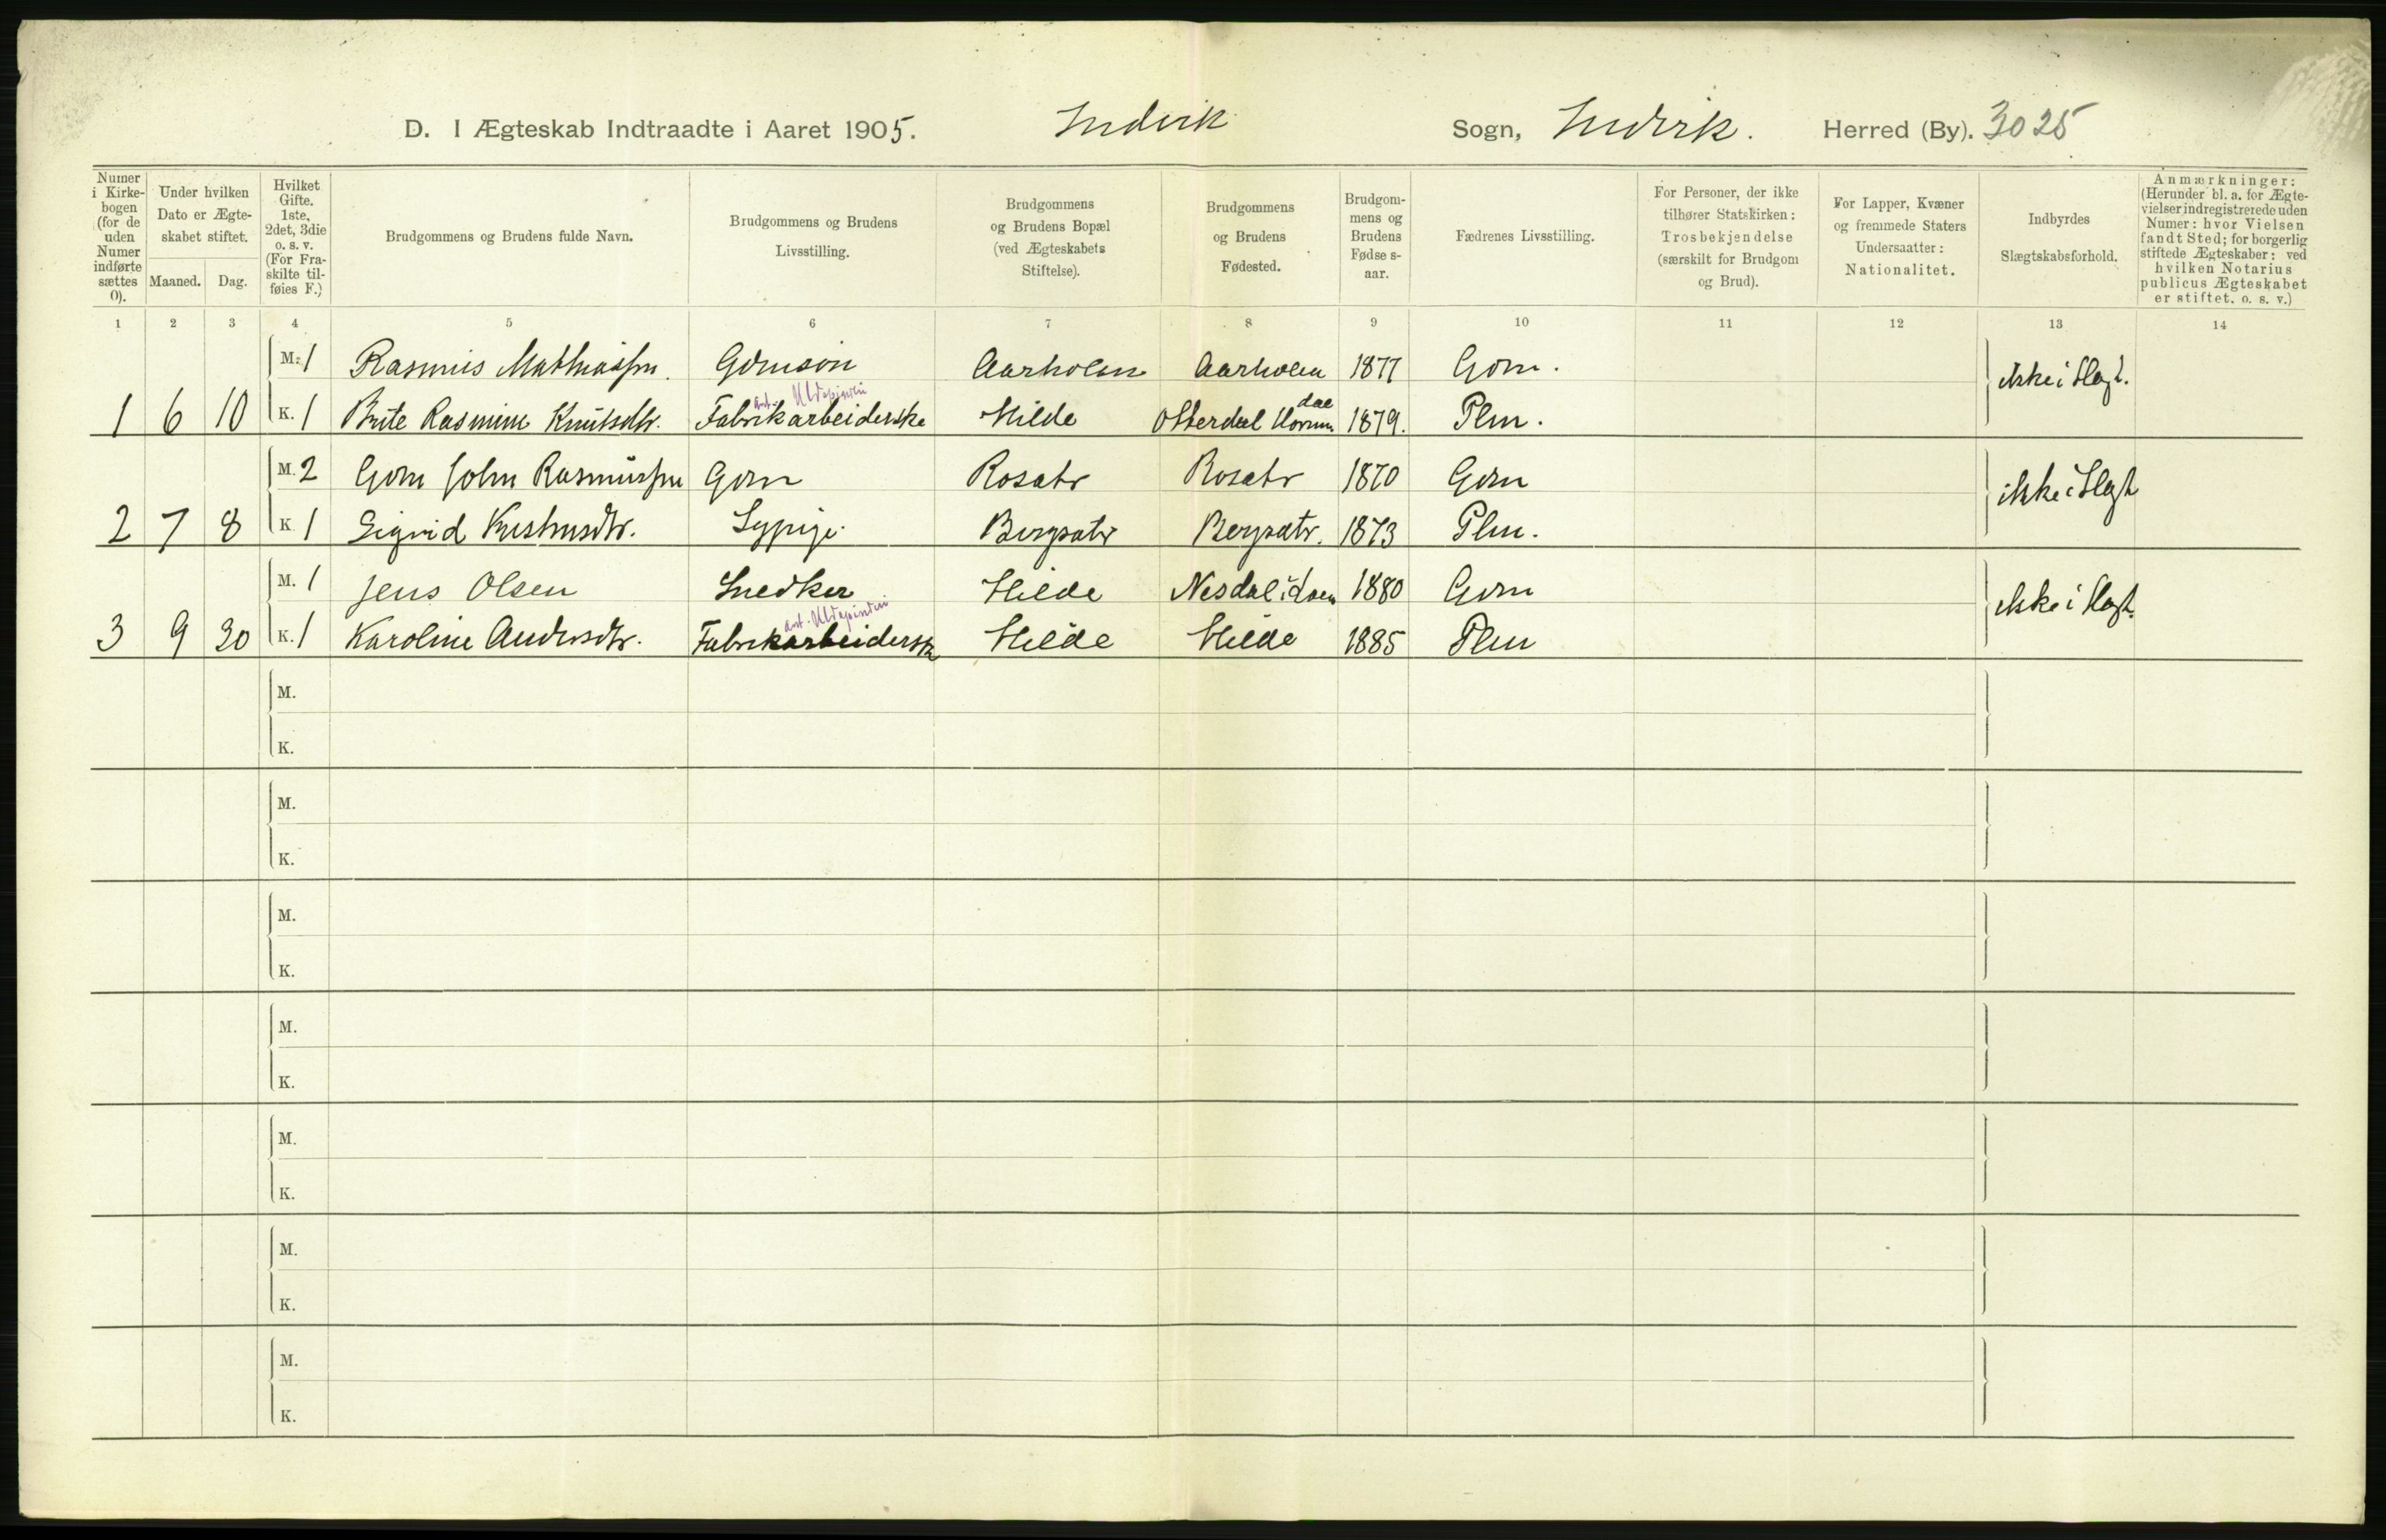 D. I Ægteskab Indtraadte i Aaret 1905. Indvik Sogn, Indvik. Herred (By). 3025
Numer i Kirkebogen (for de uden Numer indførte sættes 0).
Under hvilken Dato er Ægteskabet stiftet.
Maaned. Dag.
Hvilket Gifte. 1ste, 2det, 3die o. s. v. (For Fraskilte tilføies F.)
Brudgommens og Brudens fulde Navn.
Brudgommens og Brudens Livsstilling.
Brudgommens og Brudens Bopæl (ved Ægteskabets Stiftelse).
Brudgommens og Brudens Fødested.
Brudgommens og Brudens Fødse s-aar.
Fædrenes Livsstilling.
For Personer, der ikke tilhører Statskirken: Trosbekjendelse (særskilt for Brudgom og Brud).
For Lapper, Kvæner og fremmede Staters Undersaatter: Nationalitet.
Indbyrdes Slægtskabsforhold.
Anmærkninger: (Herunder bl. a. for Ægtevielser indregistrerede uden Numer: hvor Vielsen fandt Sted; for borgerlig stiftede Ægteskaber: ved hvilken Notarius publicus Ægteskabet er stiftet. o. s. v.)
1 2 3 4 5 6 7 8 9 10 11 12 13 14
M. 1 Rasmus Mathiassen. Gdmsøn Aarholen Aarholen 1877 Gdm. ikke i Slægt.
ant. Uldspinderi
dal
1 6 10 K. 1 Brite Rasmine Knutsdtr. Fabrikarbeiderske Hilde Otterdal 1879. Plm.
M. 2 Gdm John Rasmussen Gdm Rosætr Rosætr 1870 Gdm ikke i Slægt
2 7 8 K. 1 Sigrid Sypige Bergsætr Bergsætr. 1873 Plm.
M. 1 Jens Olsen Snedker Hilde Nesdal i Loen 1880 Gdm ikke i Slægt.
ant. Uldspinderi
3 9 30 K. 1 Karoline Andersdtr. Fabrikarbeiderske Hilde Hilde 1885 Plm
M.
K.
M.
K.
M.
K.
M.
K.
M.
K.
M.
K.
M.
K.